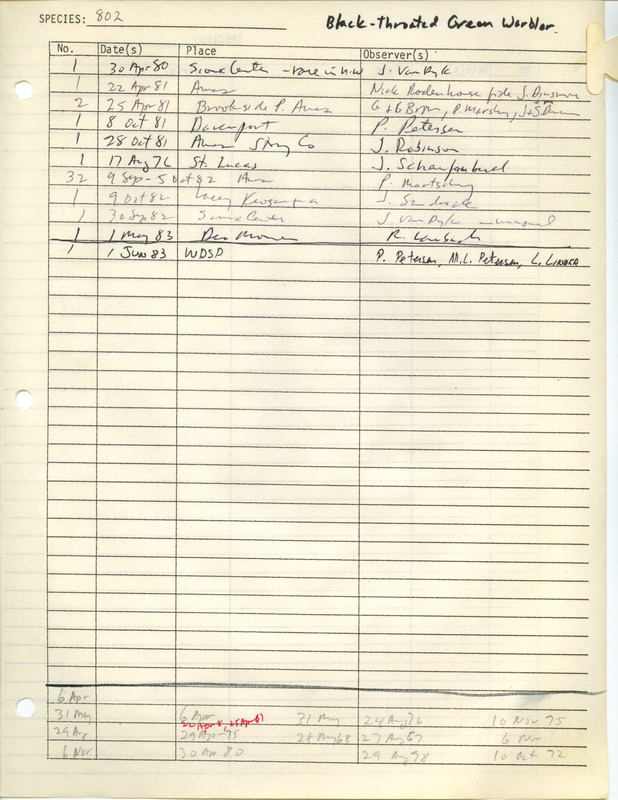 SPECIES: 802 Black-throated Green Warbler
No. Date(s) Place Observer(s)
1 30 Apr 80 Sioux Center - rare in NW J. VanDyk
1 22 Apr 81 Ames Nick Rodenhouse fide J. Dinsmore
2 25 Apr 81 Brookside P. Ames G + G B, P. Martsching, J + S D
1 8 Oct 81 Davenport P. Petersen
1 28 Oct 81 Ames Story Co J. Robinson
1 17 Aug 76 St. Lucas J. Schaufenbuel
32 9 Sep - 5 Oct 82 Ames P. Martsching
1 9 Oct 82 Lacey Keosauqua J. Sandrock
1 30 Sep 82 Sioux Center J. VanDyk - unusual
1 1 May 83 Des Moines R.
1 1 Jun 83 WDSP P. Petersen, M.L. Petersen, L. Linder
6 Apr
31 May 6 Apr 31 May 24 Aug 76 10 Nov 75
22 Apr 8, 25 Apr 81
29 Aug 29 Apr 75 28 May 68 27 Aug 67 6 Nov
6 Nov 30 Apr 80 29 Aug 98 10 Oct 72